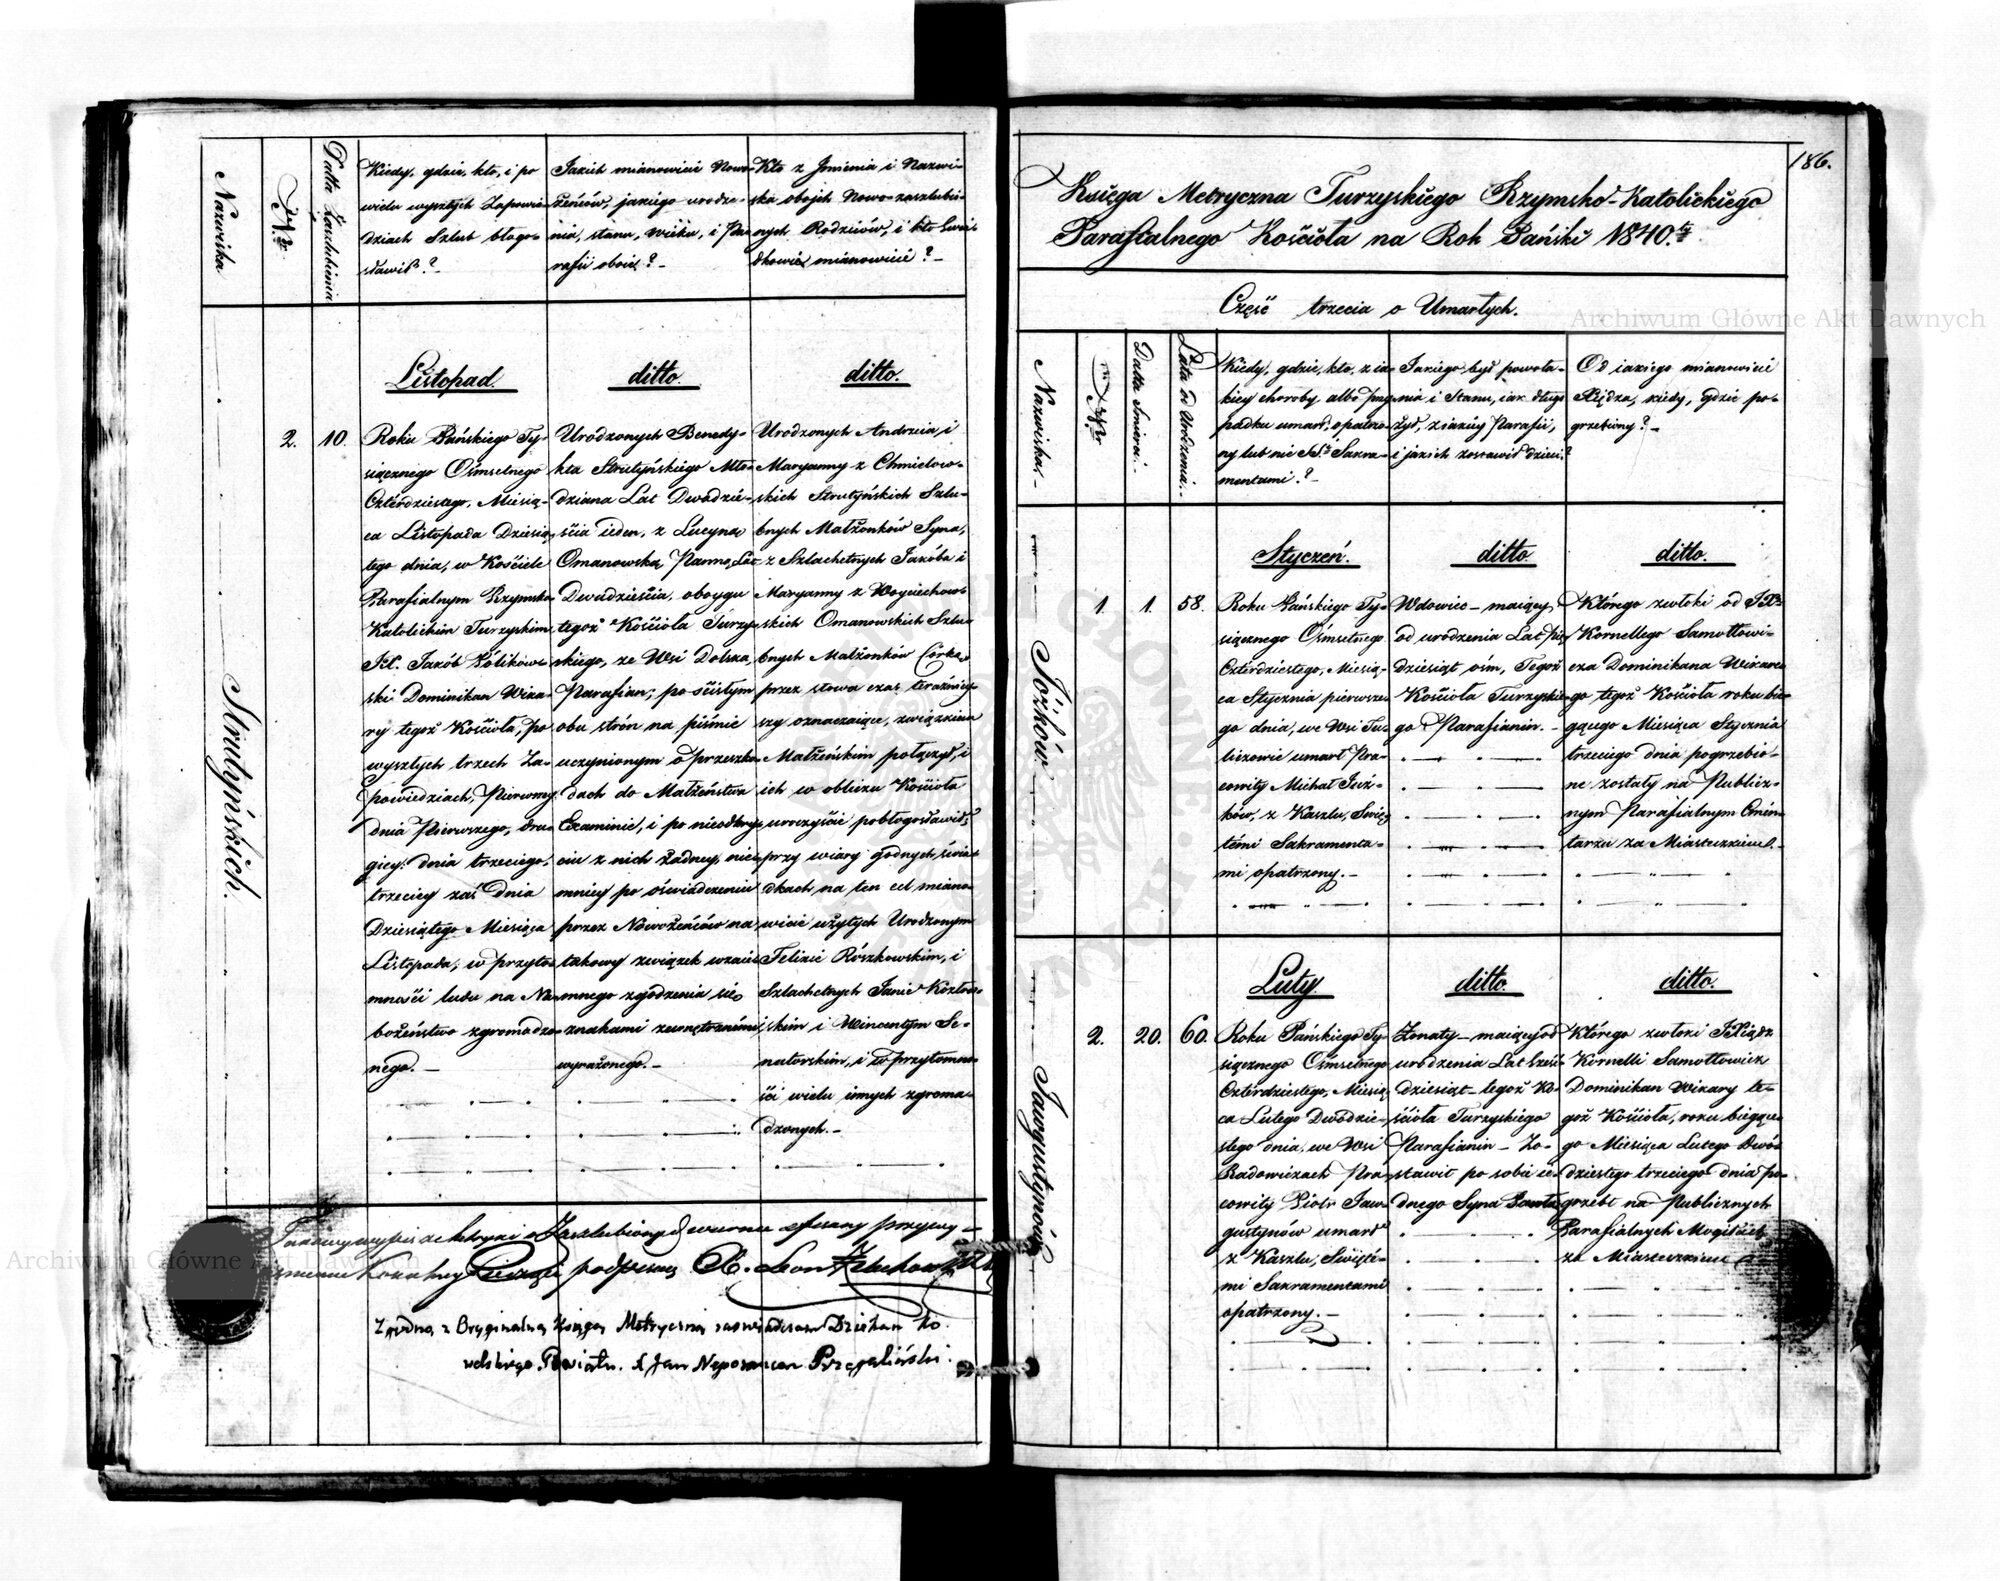 Nazwiska
Nr
Datta Zaszlubienia
Kiedy, gdzie, kto, i po
wielu wyszłych Zapowie-
dziach Szlub błogo-
sławił?-
Jakich mianowicie Nowo-
żeńców, jakiego urodze-
nia, stanu, wieku, i Pa-
rafii oboie?-
Kto z Jmienia i Nazwi-
ska obojch Nowo-zaszlubio-
nych Rodziców, i kto świa-
dkowie mianowicie?-
Listopad.
ditto.
ditto.
Strutyńskich.
2.
10.
Roku Pańskiego Ty-
siącznego Ośmsetnego
Czterdziestego, Miesią-
ca Listopada Dziesią-
tego dnia, w Kościele
Parafialnym Rzymsko
Katolickim Turzyskim
JX. Jakób Żółikow-
ski Dominikan Wika-
ry tegoż Kościoła, po
wyszłych trzech Za-
powiedziach, Pierwszej
dnia Pierwszego, dru-
giey dnia trzeciego,
trzeciey zaś Dnia
Dziesiątego Miesiąca
Listopada, w przyto-
mności ludu na Na-
bożeństwo zgromadzo-
nego.-
Urodzonych Benedy-
kta Strutyńskiego Mło-
dziana Lat Dwadzie-
ścia ieden, z Lucyną
Omanowską Panną Lat
Dwadzieścia, oboygu
tegoż Kościoła Turzy-
skiego, ze Wsi Dolska,
Parafian; po ścisłym
obu strón na piśmie
uczynionym o przeszko-
dach do Małżeństwa
Examinie, i po nieodkry-
ciu z nich żadney, nie
mniey po oświadczeniu
przez Nowożeńców na
takowy związek wzaie-
mnego zgodzenia się
znakami zewnętrznemi
wyrażonego.-
Urodzonych Andrzeia, i
Maryanny z Chmielow-
skich Strutyńskich Szlu-
bnych Małżonków Syna,
z Szlachetnych Jakóba i
Maryanny z Woyciechow-
skich Omanowskich Szlu-
bnych Małżonków Córką,
przez słowa czas teraźniey-
szy oznaczaiące, związkiem
Małżeńskim połączył, i
ich w obliczu Kościoła
uroczyście pobłogosławił,
przy wiary godnych świa-
dkach na ten cel miano-
wicie użytych Urodzonym
Felixie Rószkowskim, i
Szlachetnych Janie Kozłow-
skim i Wincentym Se-
natorskim, i w przytomno-
ści wielu innych zgroma-
dzonych.-
podpisuię X. Leon
Zgodną z Oryginalną Xięgą Metryczną zaświadczam Dziekan Ko-
welskiego Powiatu. X Jan Nepomucen
186.
Księga Metryczna Turzyskiego Rzymsko-Katolickiego
Parafialnego Kościoła na Rok Pański 1840.ty
Część trzecia o Umarłych.
Nazwiska.
Nr
Datta Śmierci.
Lata od Urodzenia.
Kiedy, gdzie, kto, z ia-
kiey choroby albo przy-
padku umarł, opatrzo-
ny lub nie SS. Sakra-
mentami?-
Jakiego był powoła-
nia i Stanu, iak długo
żył, z iakiey Parafii,
i jakich zostawił dzieci?
Od iakiego mianowicie
Xiędza, kiedy, gdzie po-
grzebiony?-
Styczeń.
ditto.
ditto.
Józków.
1.
1.
58.
Roku Pańskiego Ty-
siącznego Ośmsetnego
Czterdziestego, Miesią-
ca Stycznia pierwsze-
go dnia, we Wsi Tu-
liczowie umarł Pra-
cowity Michał Józ-
ków, z Kaszlu, Świę-
témi Sakramenta-
mi opatrzony.-
Wdowiec - maiący
od urodzenia Lat pię-
dziesiąt ośm, Tegoż
Kościoła Turzyskie-
go Parafianin.-
Którego zwłoki od JX.
Kornellego Samotłowi-
cza Dominikana Wikare-
go tegoż Kościoła roku bie-
gącego Miesiąca Stycznia
trzeciego dnia pogrzebio-
ne zostały na Publicz-
nym Parafialnym Cmin-
tarzu za Miasteczkiem.-
Luty.
ditto.
ditto.
Jawgustynów
2.
20.
60.
Roku Pańskiego Ty-
siącznego Ośmsetnego
Czterdziestego, Miesią-
ca Lutego Dwódzie-
stego dnia, we Wsi
Radowiczach Pra-
cowity Piotr Jaw-
gustynów umarł
z Kaszlu, Święté-
mi Sakramentami
opatrzony.-
Żonaty - maiący od
urodzenia Lat sześć-
dziesiąt - tegoż Ko-
ścioła Turzyskiego
Parafianin - Zo-
stawił po sobie ie-
dnego Syna
Którego zwłoki JXiądz
Kornelli Samotłowicz
Dominikan Wikary te-
goż Kościoła, roku biegące-
go Miesiąca Lutego Dwó-
dziestego trzeciego dnia po-
grzebł na Publicznych
Parafialnych Mogiłach
za Miasteczkiem
Archiwum Główne Akt Dawnych
Archiwum Główne Akt Dawnych